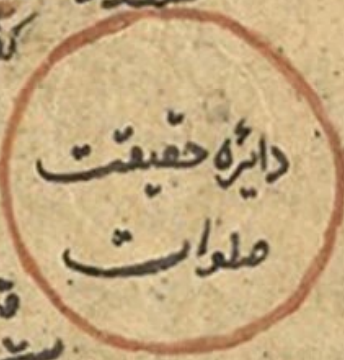 دایرۀ حقیقت
صلوات